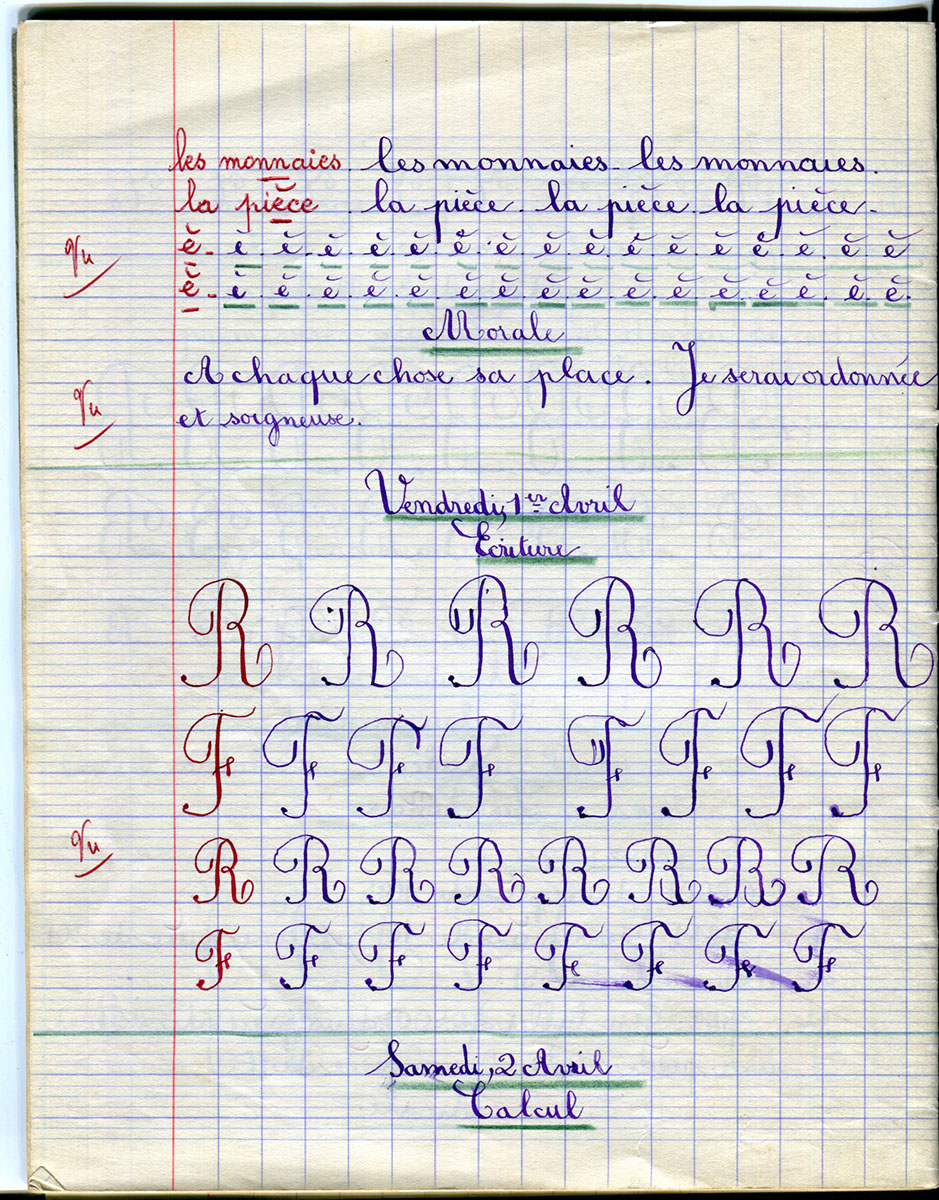 les monnaies. les monnaies. les monnaies.
la pièce. la pièce. la pièce. la pièce.
è. è è è è è è è è è è è è è è è è
è. è è è è è è è è è è è è è è è è.
Morale
A chaque chose sa place. Je serai ordonnée
et soigneuse.
Vendredi, 1er Avril
Ecriture
R R R R R R
F F F F F F F F
R R R R R R R R
F F F F F F F F
Samedi, 2 Avril
Calcul